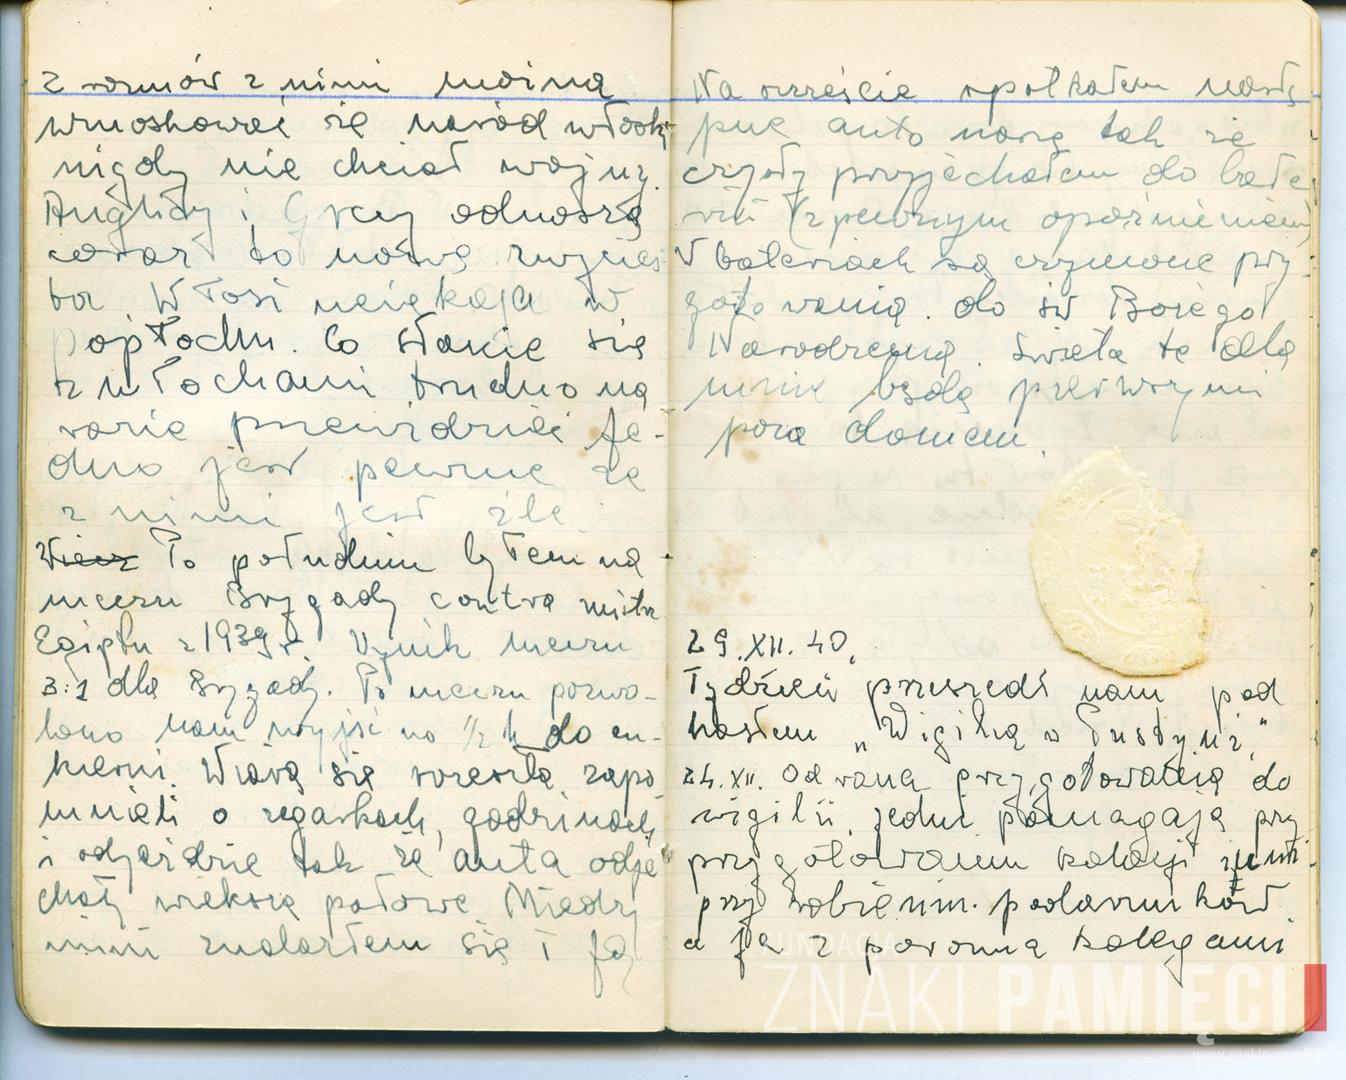 z rozmów z nimi można
wnioskować że naród włoski
nigdy nie chciał wojny.
Anglicy i Grecy odnoszą
coraz to nowe zwycięs-
twa Włosi uciekają w
popłochu. Co stanie się
z Włochami trudno na
razie przewidzieć je-
dno jest pewne że
z nimi jest źle.
Wiecz Po południu byłem na
meczu Brygady contra mistrz
Egiptu z 1939 r. Wynik meczu
3:1 dla Brygady. Po meczu pozwo-
lono nam wyjść na 1/2 h do cu-
kierni. Wiara się rozeszła zapo
mnieli o zegarkach, godzinach
i odjeździe tak że auta odje
chały większą połowę. Miedzy
nimi znalazłem się i ja
Na szczęście spotkałem nastę
pne auto nasze tak że
przyjechałem do bate
rii (z pewnym opóźnieniem)
W bateriach są czynione przy-
gotowania do św Bożego
Narodzenia. Święta te dla
mnie będą pierwszymi
poza domem.
29.XII.40.
Tydzień przeszedł nam pod
hasłem „Wigilia w Pustyni"
24.XII. Od rana przygotowania do
wigilii, jedni pomagają przy
przygotowaniu kolacji inni
przy robieniu podarunków
a ja z paroma kolegami
FUNDACJA
ZNAKI PAMIĘCI
www.znakipamieci.pl